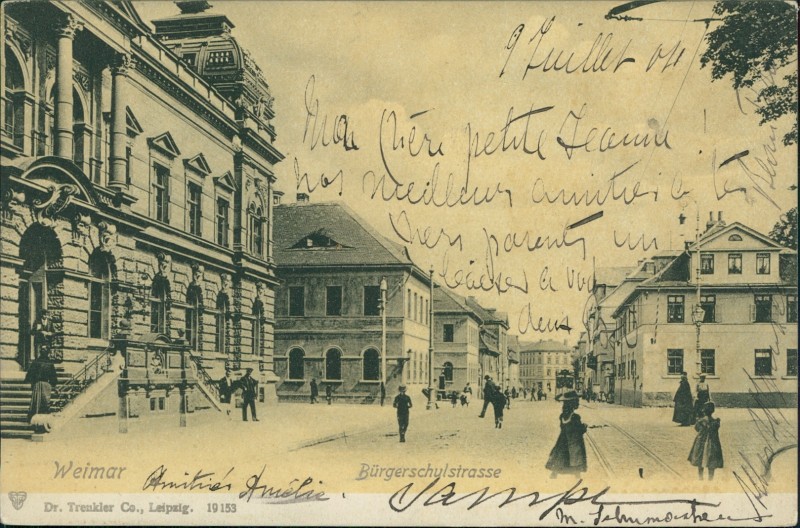 9 Juillet 04
Mon chère petite Jeanne!
nos meilleurs amitiés a tes
chers parents un
baiser a vous
deux
Weimar
Bürgerschulstrasse
Amitiés Amélie.
Dr. Trenkler Co., Leipzig. 19 153